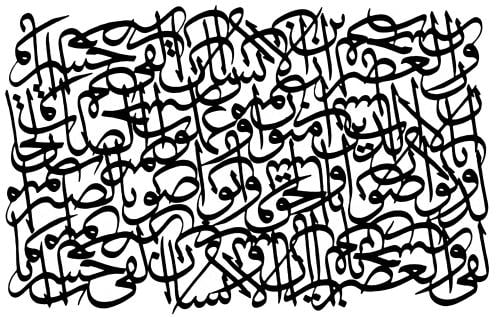 والعصر ان الانسان لفي خسر
الا الذين امنوا وعملوا الصالحات
وتواصوا بالحق وتواصوا بالصبر
والعصر ان الانسان لفي خسر